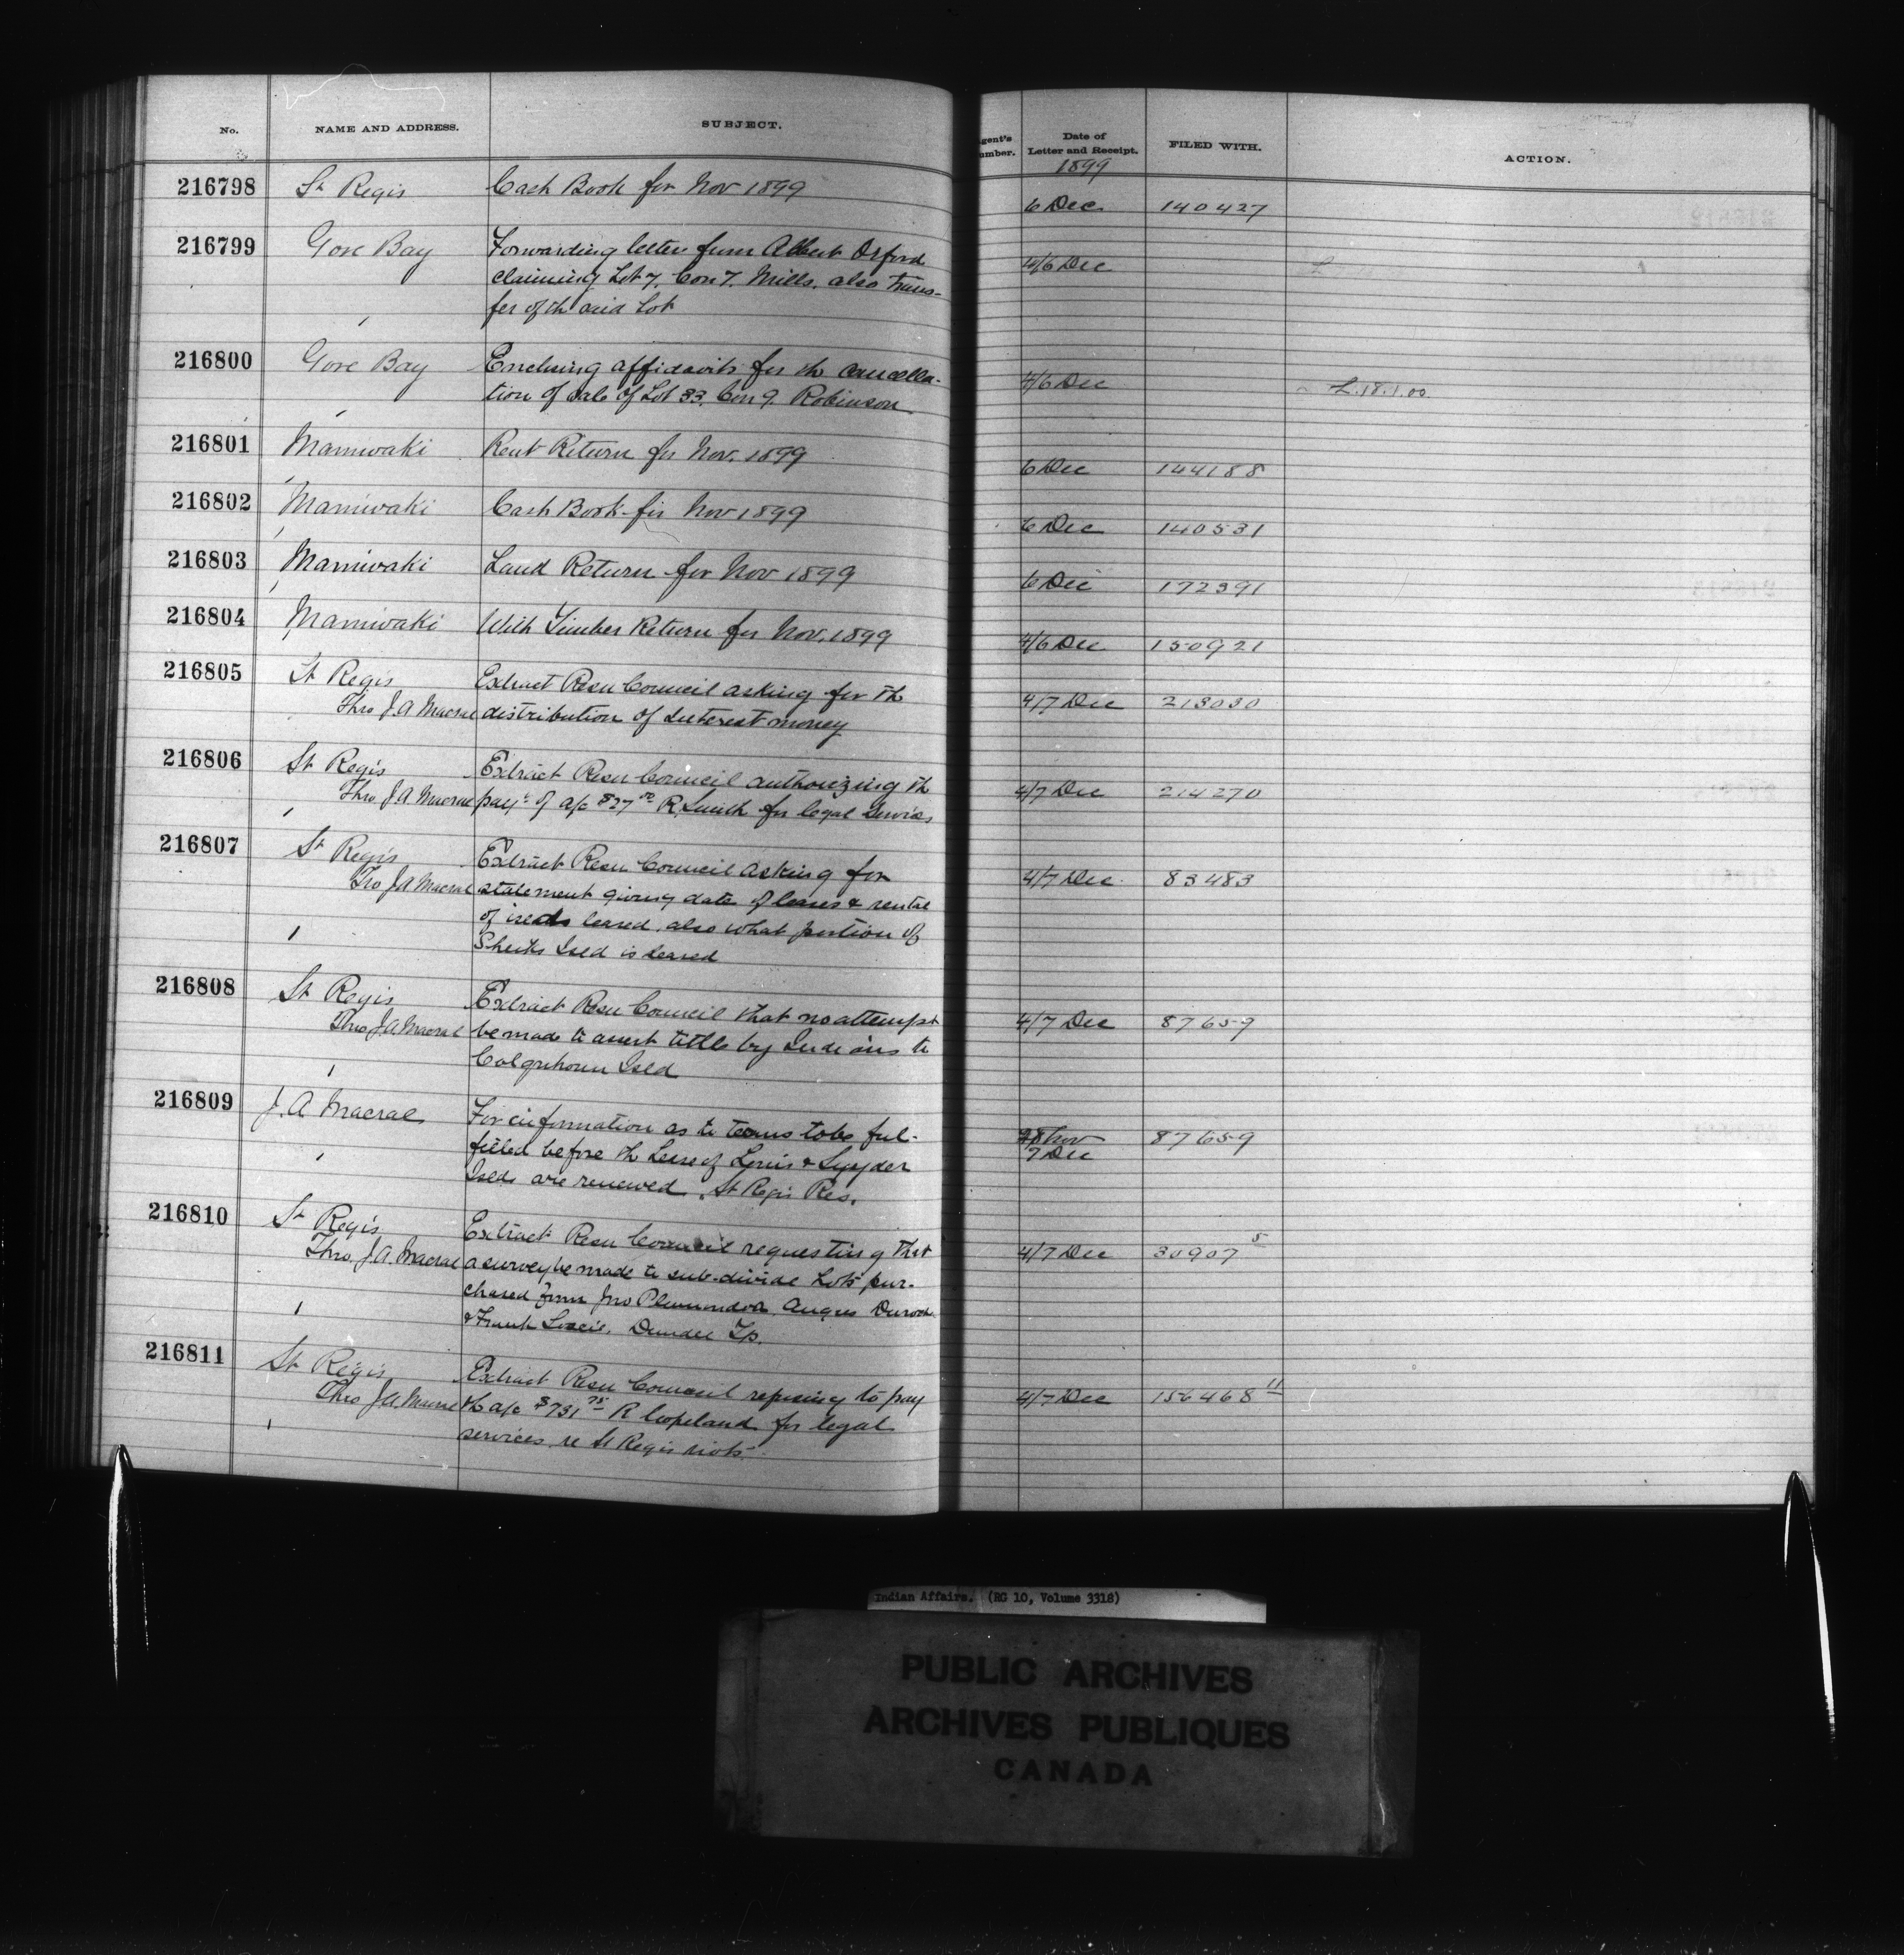 No. NAME AND ADDRESS. SUBJECT. gent's umber. Date of Letter and Receipt. FILED WITH. ACTION.
1899
216798 St Regis Cash Book for Nov 1899 6 Dec 140427
216799 Gore Bay Forwarding letter from Albert Orford 4/6 Dec L
claiming Lot 7, Con 7. Mills. also trans-
fer of th said Lot
216800 Gore Bay Enclosing affidavits for the cancella- 4/6 Dec L.18.1.00
tion of sale of Lot 33, Con 9. Robinson
216801 Maniwaki Rent Return for Nov. 1899 6 Dec 144188
216802 Maniwaki Cash Book for Nov 1899 6 Dec 140531
216803 Maniwaki Land Return for Nov 1899 6 Dec 172391
216804 Maniwaki With Timber Return for Nov. 1899 4/6 Dec 150921
216805 St Regis Extract Resn Council asking for th 4/7 Dec 213030
Thro J. A Macrae distribution of Interest money
216806 St Regis Extract Resn Council authorizing th 4/7 Dec 214270
Thro J. A Macrae payt of a/c $27 00 R. Smith for legal services
216807 St Regis Extract Resn Council asking for 4/7 Dec 83483
Thro J A Macrae statement giving date of leases & rental
of leased, also what portion of
Sheiks Isld is leased
216808 St Regis Extract Resn Council that no attempt 4/7 Dec 87659
Thro J. A. Macrae be made to assert tittle by Indians to
Colquhoun Isld
216809 J. A Macrae For information as to terms to be ful- 28 Nov 87659
filled before th Lease of Lewis & Snyder 7 Dec
Islds are renewed. St Regis Res.
216810 St Regis Extract Resn Council requesting that 4/7 Dec 30907 5
Thro. J. A. Macrae a survey be made to sub-divide Lots pur-
chased from Jno Plamondon Angus
& Frank Dundee Tp.
216811 St Regis Extract Resn Council refusing to pay 4/7 Dec 156468 11
Thro J. A. Macrae th a/c $731 75 R Copeland for legal
services re St Regis riots
Indian Affairs. (RG 10, Volume 3318)
PUBLIC ARCHIVES
ARCHIVES PUBLIQUES
CANADA